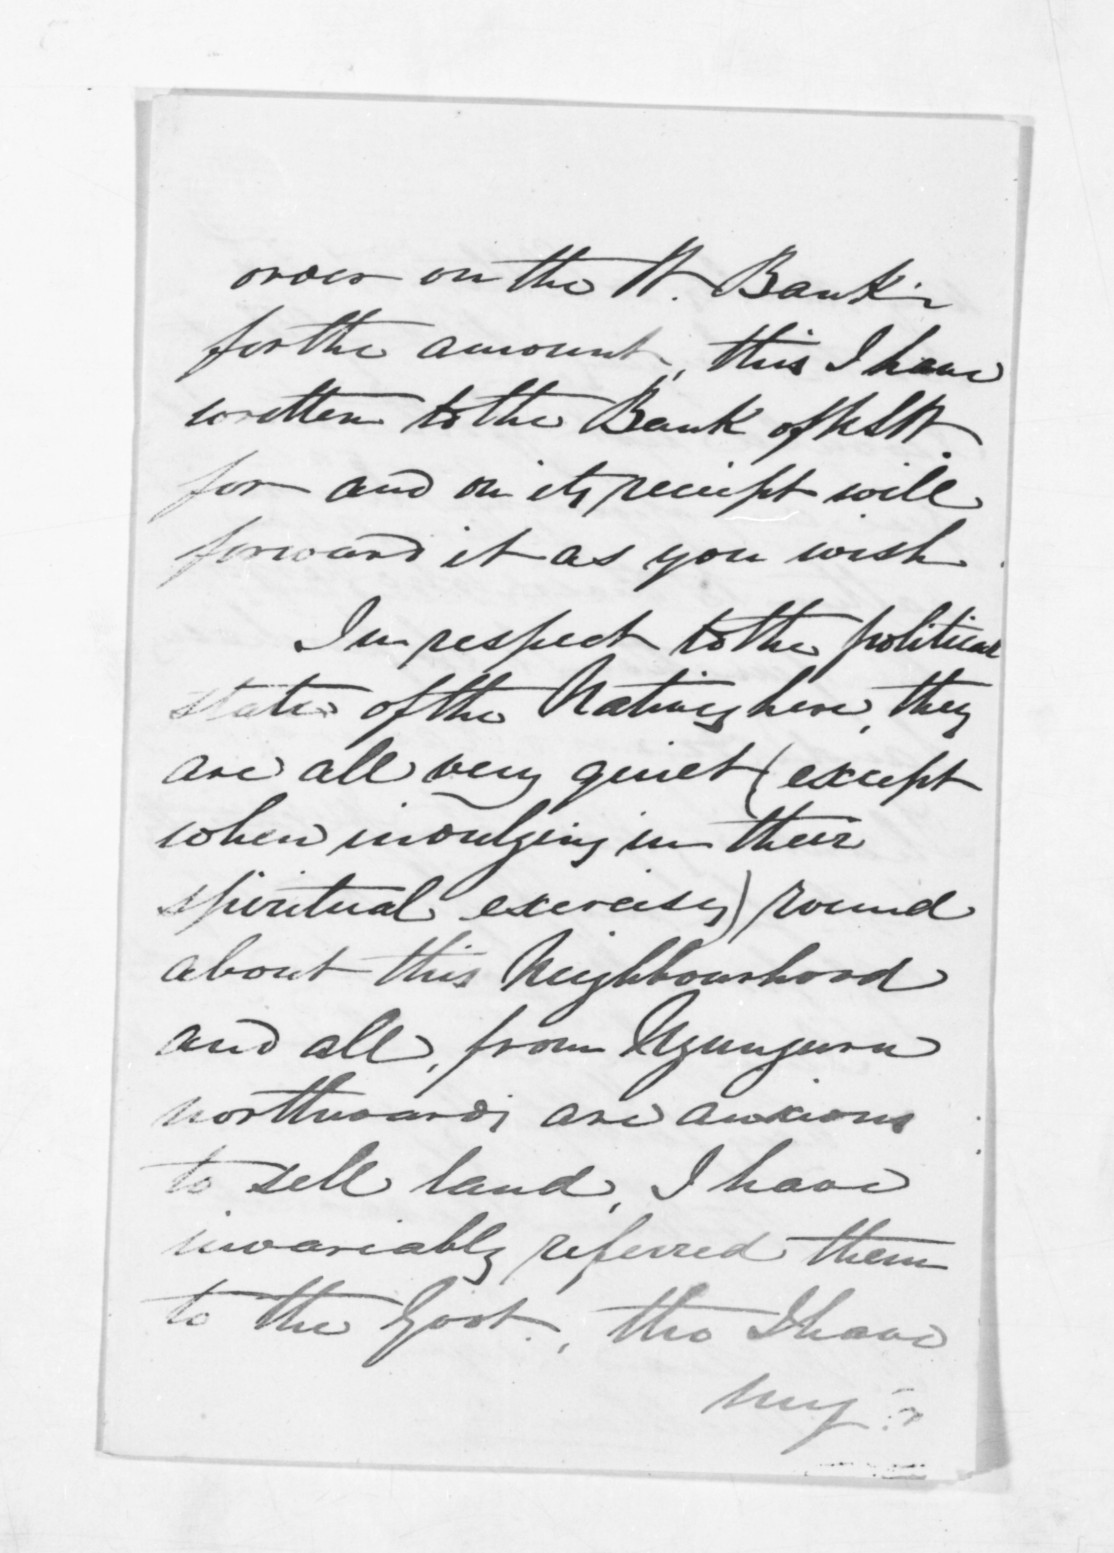 order on the N. Bank
for the amount, this I have
written to the Bank of NSW
for and on its receipt will
forward it as you wish.
In respect to the political
state of the Natives here, they
are all very quiet (except
when indulging in their
spiritual exercises) round
about this Neighbourhood
and all, from Ngunguru
northwards are anxious
to sell land, I have
invariably referred them
to the Govt., tho I have
my